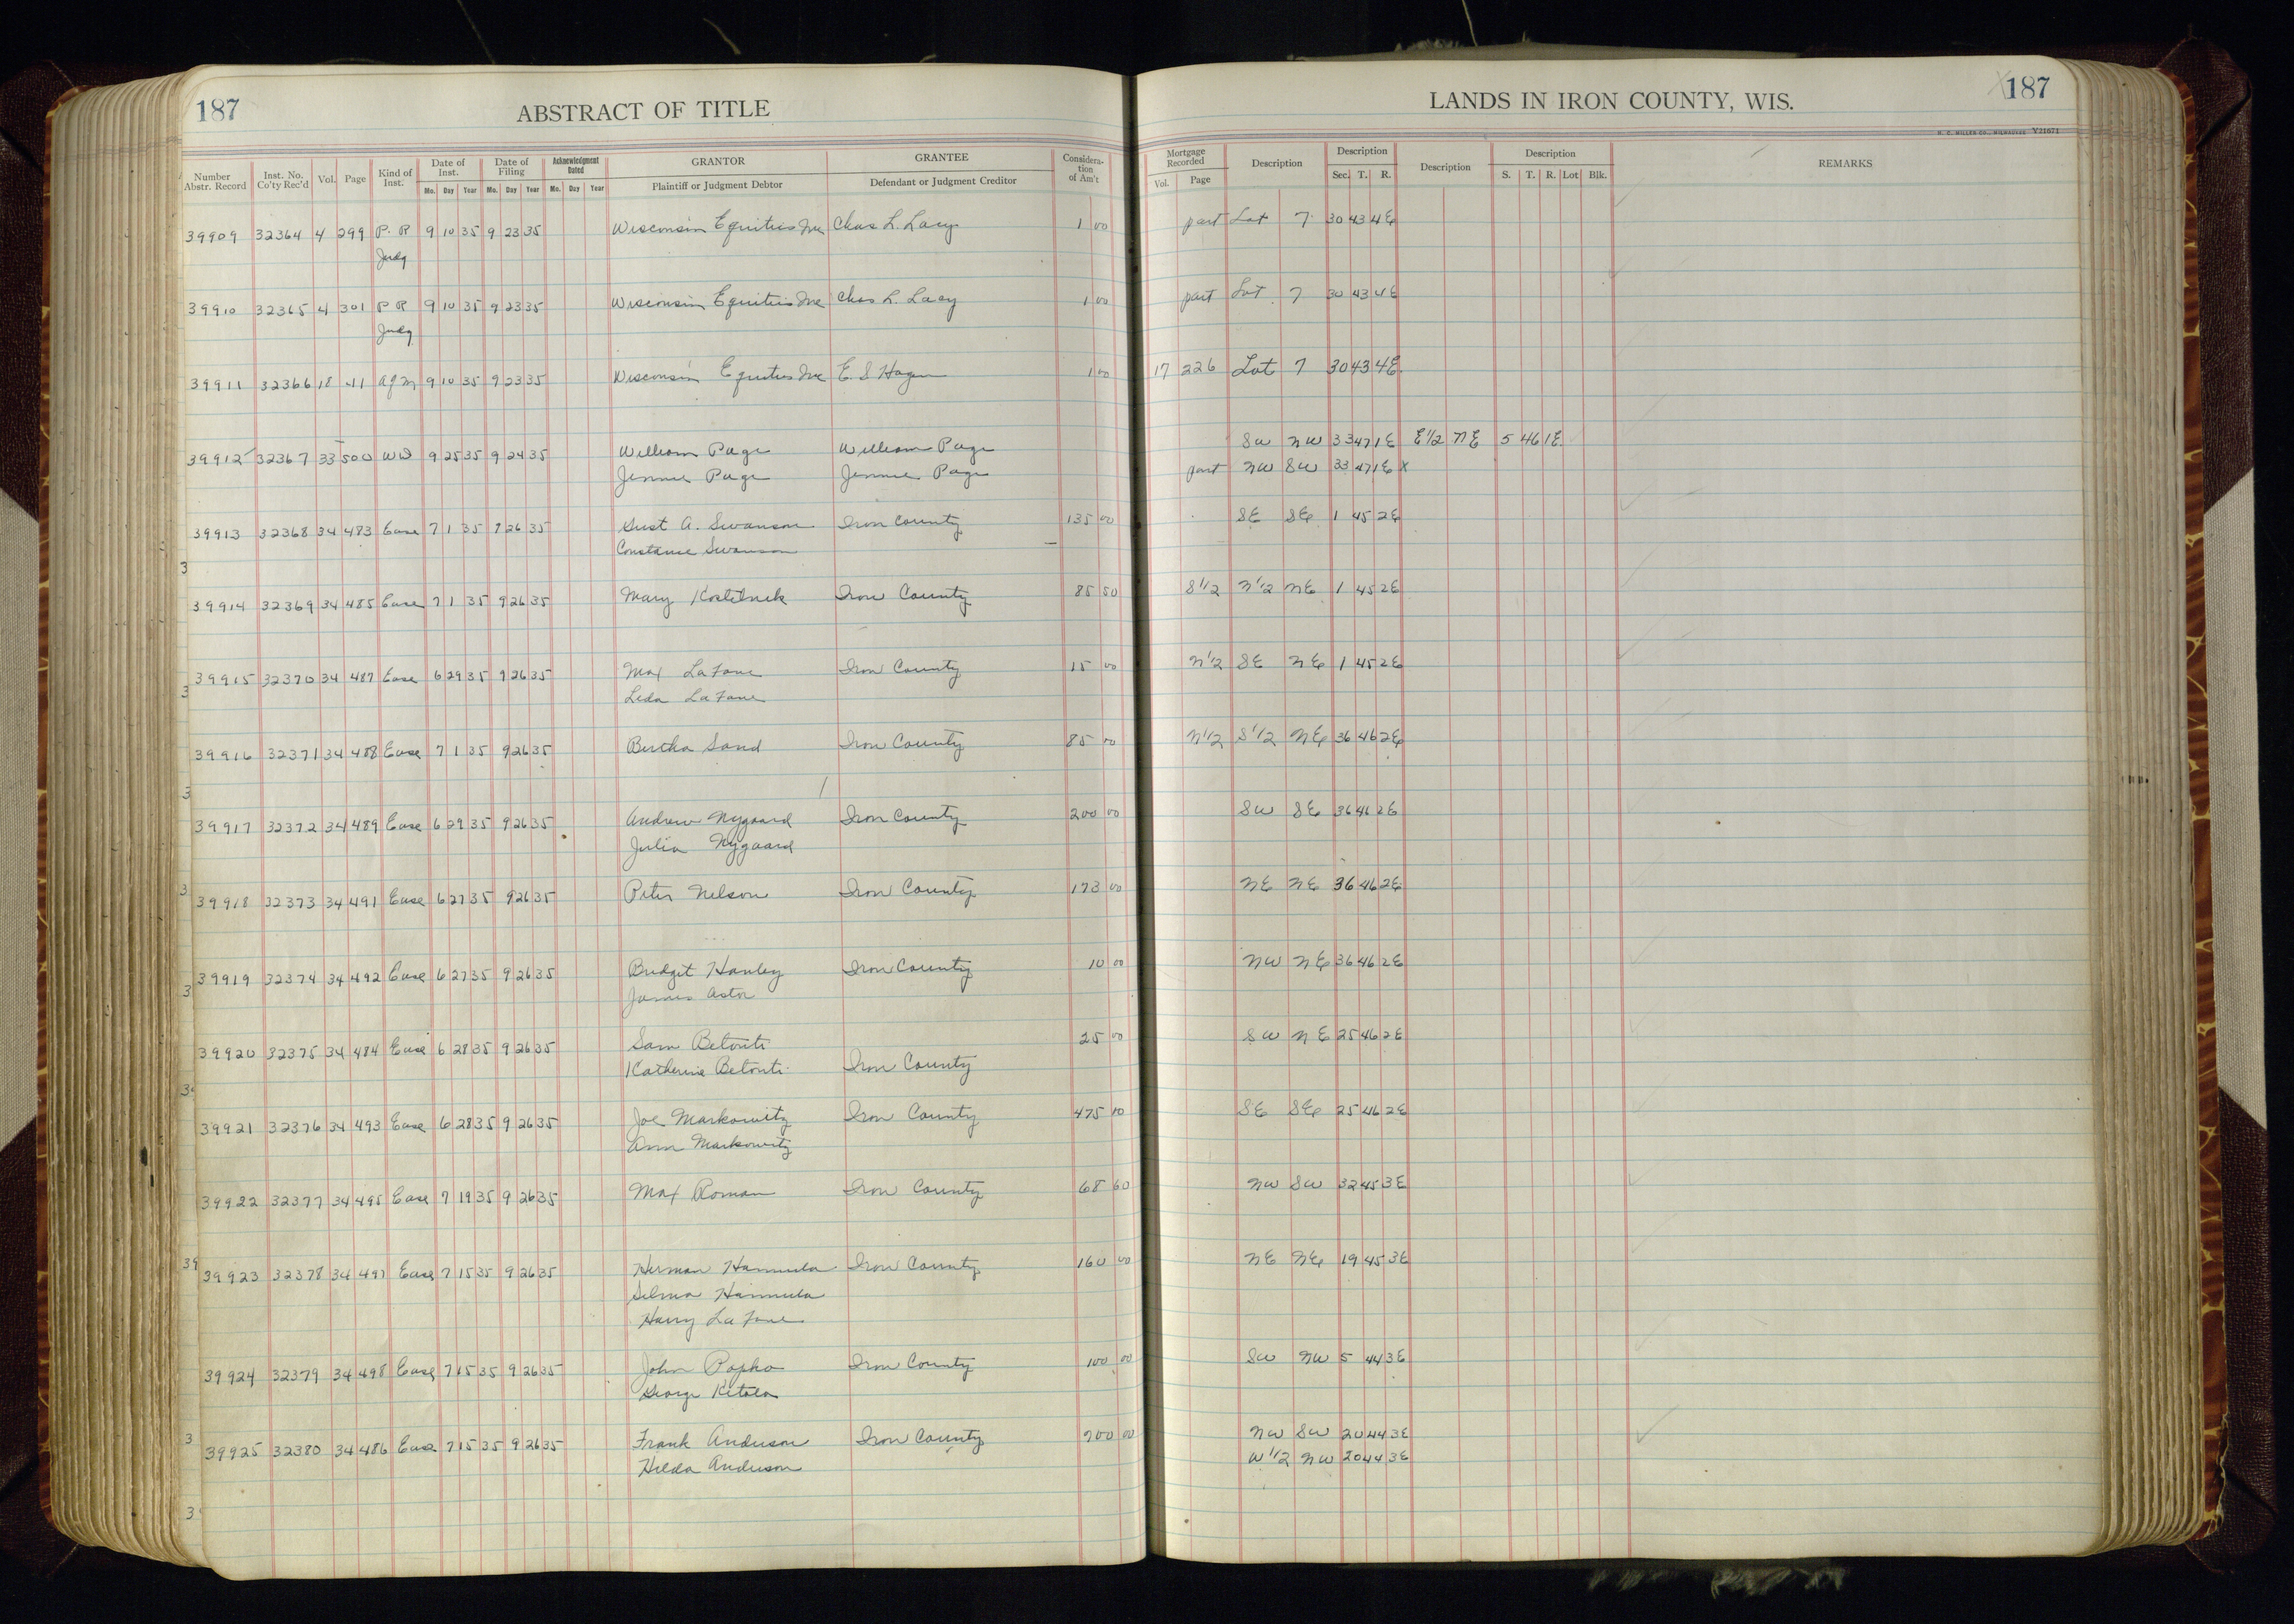 187
ABSTRACT OF TITLE
LANDS IN IRON COUNTY, WIS.
187
H. C. MILLER CO., MILWAUKEE Y21671
Number Abstr. Record Inst. No. Co'ty Rec'd Vol. Page Kind of Inst. Date of Inst. Mo. Day Year Date of Filing Mo. Day Year Acknowledgment Dated Mo. Day Year GRANTOR Plaintiff or Judgment Debtor GRANTEE Defendant or Judgment Creditor Consideration of Am't Mortgage Recorded Vol. Page Description Description Sec. T. R. Description Description S. T. R. Lot Blk. REMARKS
39909 32364 4 299 P. R 9 10 35 9 23 35 Wisconsin Equities Inc Chas L. Lacy 1 00 part Lot 7 30 43 4E
Judg
39910 32365 4 301 P R 9 10 35 9 23 35 Wisconsin Equities Inc Chas L. Lacy 1 00 part Lot 7 30 43 4E
Judg
39911 32366 18 411 Afm 9 10 35 9 23 35 Wisconsin Equities Inc E. S Hagen 1 00 17 226 Lot 7 30 43 4E
39912 32367 33 500 WD 9 25 35 9 24 35 William Page William Page SW NW 33 47 1E E1/2 NE 5 46 1E
Jennie Page Jennie Page part NW SW 33 47 1E X
39913 32368 34 483 Ease 7 1 35 9 26 35 Gust A. Swanson Iron County 135 00 SE SE 1 45 2E
Constance Swanson
39914 32369 34 485 Ease 7 1 35 9 26 35 Mary Iron County 85 50 S1/2 N1/2 NE 1 45 2E
39915 32370 34 487 Ease 6 29 35 9 26 35 Max LaFave Iron County 15 00 N1/2 SE NE 1 45 2E
Leda LaFave
39916 32371 34 488 Ease 7 1 35 9 26 35 Bertha Sand Iron County 85 00 N1/2 S1/2 NE 36 46 2E
39917 32372 34 489 Ease 6 29 35 9 26 35 Andrew Nygaard Iron County 200 00 SW SE 36 46 2E
Julia Nygaard
39918 32373 34 491 Ease 6 27 35 9 26 35 Peter Nelson Iron County 173 00 NE NE 36 46 2E
39919 32374 34 492 Ease 6 27 35 9 26 35 Bridget Hanley Iron County 10 00 NW NE 36 46 2E
James Aston
39920 32375 34 484 Ease 6 28 35 9 26 35 Sam Betonti 25 00 SW NE 25 46 2E
Katherine Betonti Iron County
39921 32376 34 493 Ease 6 28 35 9 26 35 Joe Markowitz Iron County 475 10 SE SE 25 46 2E
Ann Markowitz
39922 32377 34 495 Ease 7 19 35 9 26 35 Max Roman Iron County 68 60 NW SW 32 45 3E
39923 32378 34 497 Ease 7 15 35 9 26 35 Herman Hannula Iron County 160 00 NE NE 19 45 3E
Selma Hannula
Harry LaFave
39924 32379 34 498 Ease 7 15 35 9 26 35 John Popko Iron County 100 00 SW NW 5 44 3E
George Kitola
39925 32380 34 486 Ease 7 15 35 9 26 35 Frank Anderson Iron County 200 00 NW SW 20 44 3E
Hilda Anderson W1/2 NW 20 44 3E